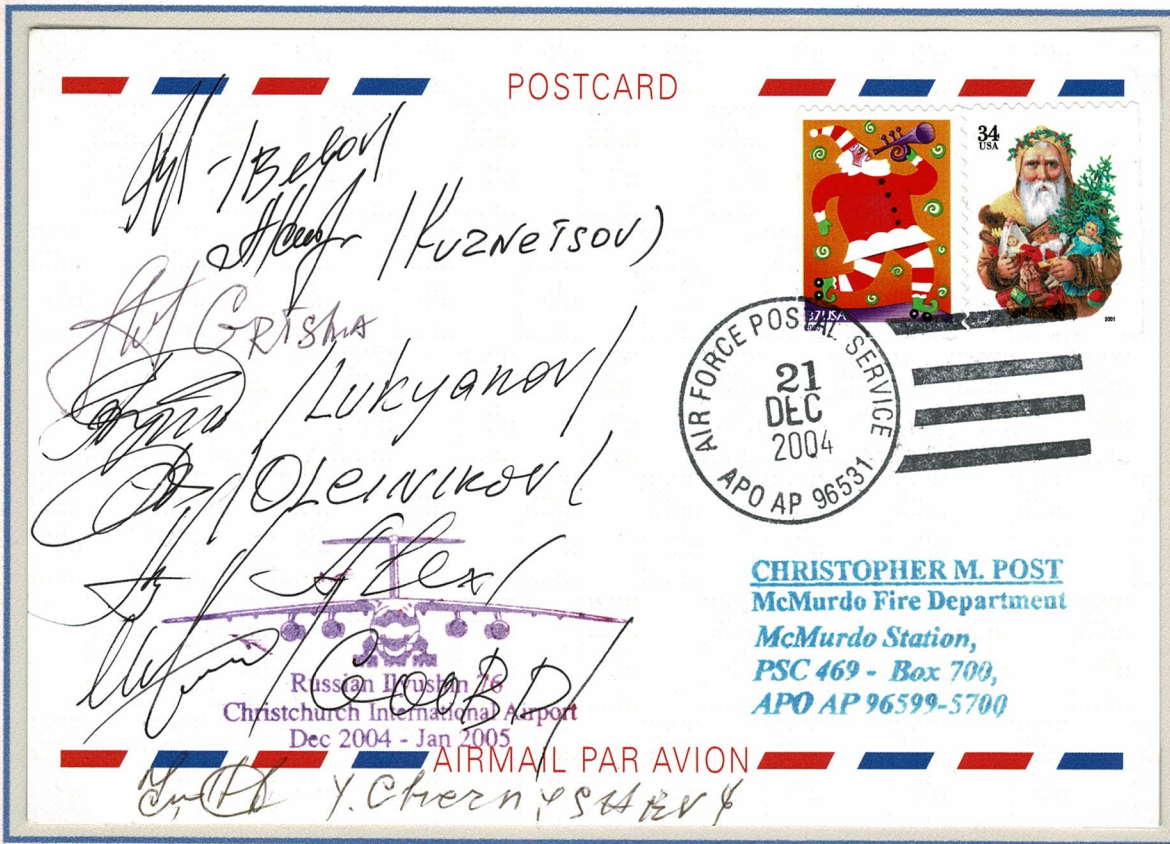 POSTCARD
/Belov/
/Kuznetsov)
GRISHA
/Lukyanov/
/Oleinikov/
/Alex/
Russian Ilyushin 76
Christchurch International Airport
Dec 2004 - Jan 2005
AIRMAIL PAR AVION
34
USA
37USA
2001
AIR FORCE POSTAL SERVICE
21
DEC
2004
APO AP 96531
CHRISTOPHER M. POST
McMurdo Fire Department
McMurdo Station,
PSC 469 - Box 700,
APO AP 96599-5700